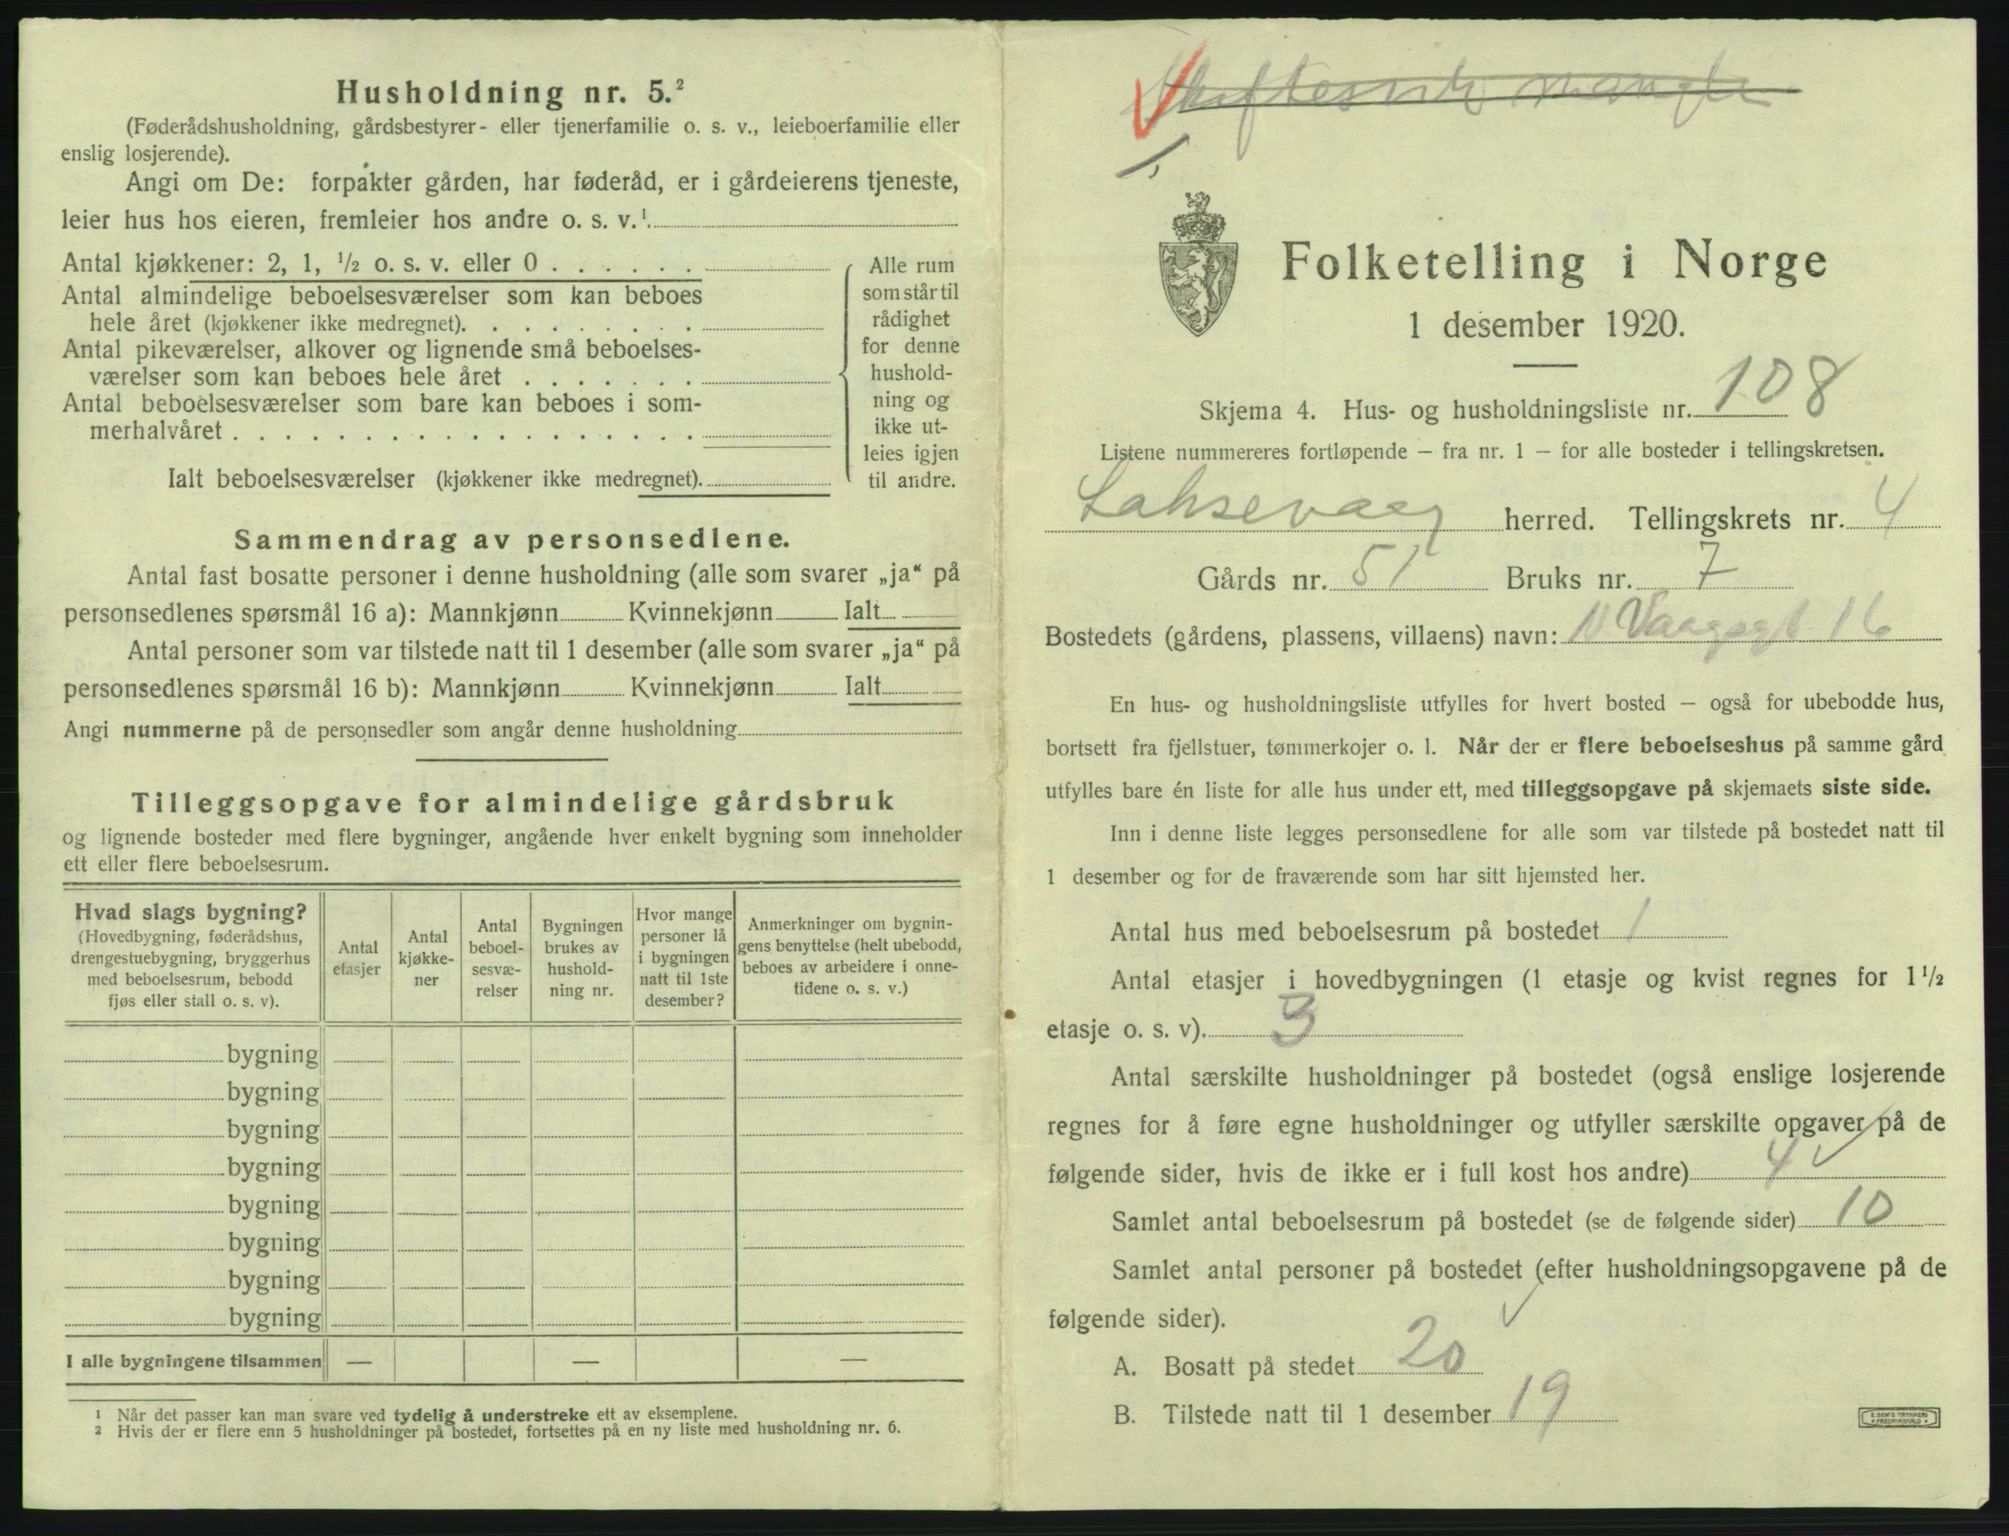 Husholdning nr. 5.²
(Føderådshusholdning, gårdsbestyrer- eller tjenerfamilie o. s. v., leieboerfamilie eller
enslig losjerende).
Angi om De: forpakter gården, har føderåd, er i gårdeierens tjeneste,
leier hus hos eieren, fremleier hos andre o. s. v.¹.
Antal kjøkkener: 2, 1, ½ o. s. v. eller 0 . . . . . .
Antal almindelige beboelsesværelser som kan beboes
hele året (kjøkkener ikke medregnet). . . . . . . . .
Antal pikeværelser, alkover og lignende små beboelses-
værelser som kan beboes hele året . . . . . . .
Antal beboelsesværelser som bare kan beboes i som-
merhalvåret . . . . . . . . . . . . . . . . . .
Ialt beboelsesværelser (kjøkkener ikke medregnet).
Alle rum
som står til
rådighet
for denne
hushold-
ning og
ikke ut-
leies igjen
til andre.
Sammendrag av personsedlene.
Antal fast bosatte personer i denne husholdning (alle som svarer „ja“ på
personsedlenes spørsmål 16 a): Mannkjønn Kvinnekjønn Ialt
Antal personer som var tilstede natt til 1 desember (alle som svarer „ja“ på
personsedlenes spørsmål 16 b): Mannkjønn Kvinnekjønn Ialt
Angi nummerne på de personsedler som angår denne husholdning
Tilleggsopgave for almindelige gårdsbruk
og lignende bosteder med flere bygninger, angående hver enkelt bygning som inneholder
ett eller flere beboelsesrum.
Hvad slags bygning?
(Hovedbygning, føderådshus,
drengestuebygning, bryggerhus
med beboelsesrum, bebodd
fjøs eller stall o. s. v).
Antal
etasjer
Antal
kjøkke-
ner
Antal
beboel-
sesvæ-
relser
Bygningen
brukes av
hushold-
ning nr.
Hvor mange
personer lå
i bygningen
natt til 1ste
desember?
Anmerkninger om bygnin-
gens benyttelse (helt ubebodd,
beboes av arbeidere i onne-
tidene o. s. v.)
bygning
bygning
bygning
bygning
bygning
bygning
bygning
bygning
I alle bygningene tilsammen — — —
¹ Når det passer kan man svare ved tydelig å understreke ett av eksemplene.
² Hvis der er flere enn 5 husholdninger på bostedet, fortsettes på en ny liste med husholdning nr. 6.
Folketelling i Norge
1 desember 1920.
Skjema 4. Hus- og husholdningsliste nr. 108
Listene nummereres fortløpende — fra nr. 1 — for alle bosteder i tellingskretsen.
Laksevaag herred. Tellingskrets nr. 4
Gårds nr. 51 Bruks nr. 7
Bostedets (gårdens, plassens, villaens) navn: N Vaagsgt 16
En hus- og husholdningsliste utfylles for hvert bosted — også for ubebodde hus,
bortsett fra fjellstuer, tømmerkojer o. l. Når der er flere beboelseshus på samme gård
utfylles bare én liste for alle hus under ett, med tilleggsopgave på skjemaets siste side.
Inn i denne liste legges personsedlene for alle som var tilstede på bostedet natt til
1 desember og for de fraværende som har sitt hjemsted her.
Antal hus med beboelsesrum på bostedet 1
Antal etasjer i hovedbygningen (1 etasje og kvist regnes for 1½
etasje o. s. v). 3
Antal særskilte husholdninger på bostedet (også enslige losjerende
regnes for å føre egne husholdninger og utfyller særskilte opgaver på de
følgende sider, hvis de ikke er i full kost hos andre) 4
Samlet antal beboelsesrum på bostedet (se de følgende sider) 10
Samlet antal personer på bostedet (efter husholdningsopgavene på de
følgende sider).
A. Bosatt på stedet 20
B. Tilstede natt til 1 desember 19